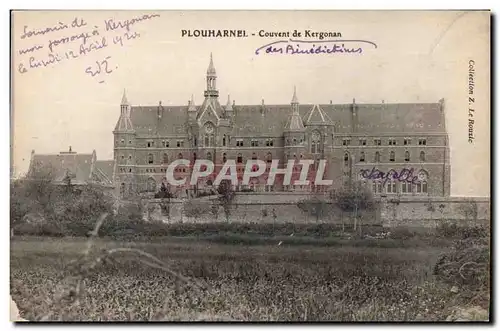 Souvenir de
mon passage à Kergonan
le Lundi 12 Avril 1920
PLOUHARNEL - Couvent de Kergonan
des Bénédictines
Collection Z. Le Rouzic
CARPHILL
Chapelle